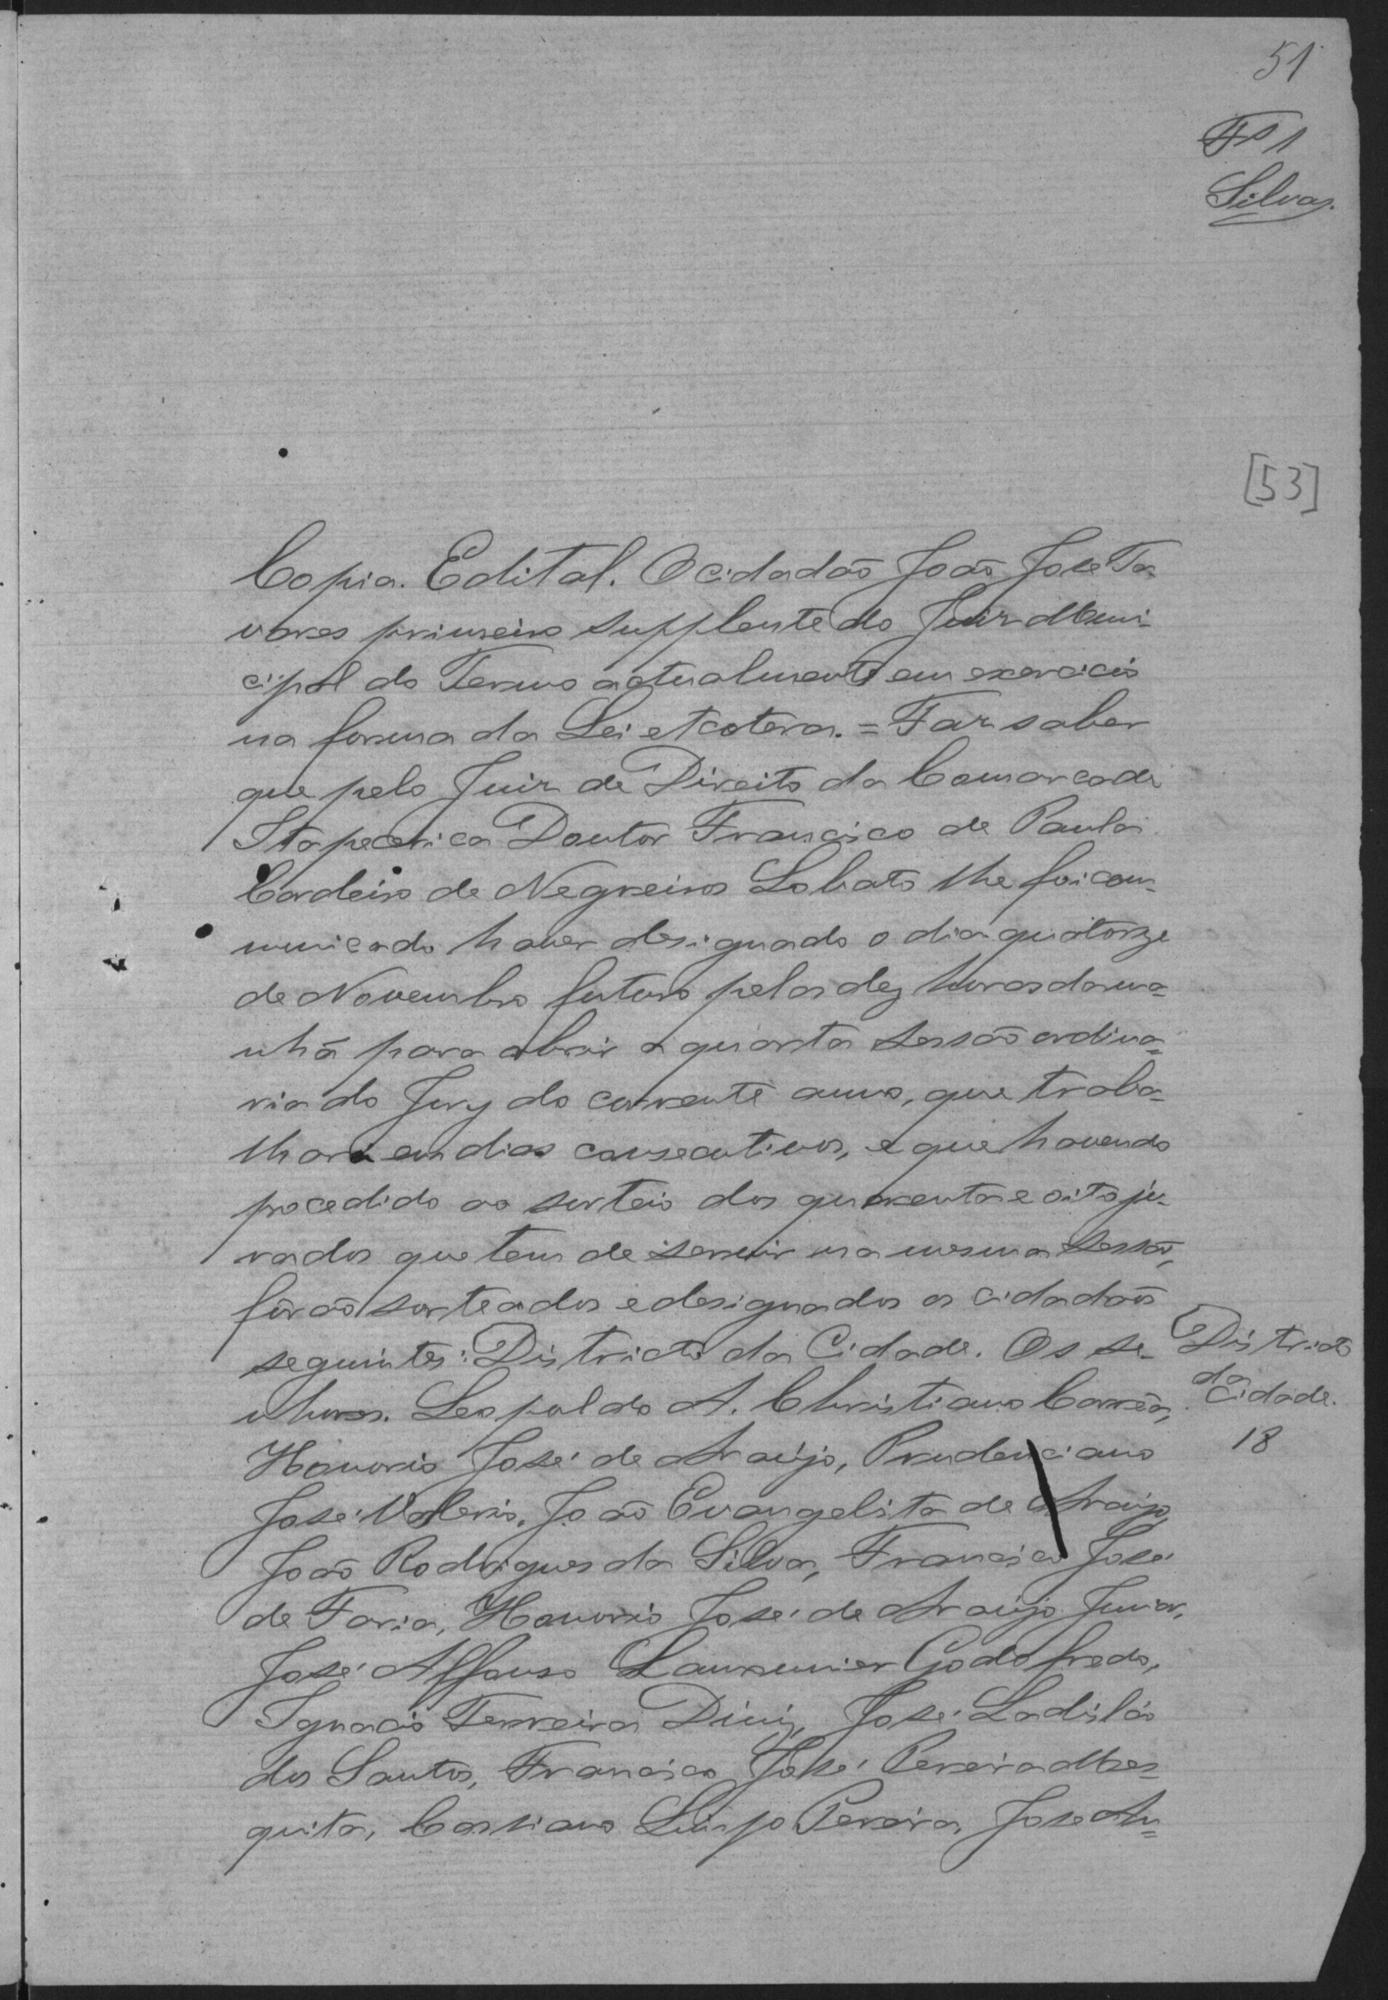 51
Fs 1
Silva.
[53]
Copia. Edital. O cidadão João José Ta-
vares primeiro supplente do Juiz Muni-
cipal do Termo actualmente em exercicio
na forma da Lei etcetera. = Faz saber
que pelo Juiz de Direito da Comarca de
Itapecerica Doutor Francisco de Paula
Cordeiro de Negreiros Lobato lhe foi com-
municado haver designado o dia quatorze
de Novembro futuro pelas dez horas da ma-
nhã para abrir a quarta sessão ordina-
ria do Jury do corrente anno, que traba-
lhará em dias consecutivos, e que havendo
procedido ao sorteio dos quarenta e oito ju-
rados que tem de servir na mesma sessão,
fôrão sorteados e designados os cidadãos
seguintes: Districto da Cidade. Os se-
nhores. Leopoldo A. Christiano Corrêa,
Honorio José de Araújo, Prudenciano
José Valerio, João Evangelista de Araujo,
João Rodrigues da Silva, Francisco José
de Faria, Honorio José de Araújo Junior,
José Affonso Laurunier Godofredo,
Ignacio Ferreira Diniz, José Ladisláo
dos Santos, Francisco José Pereira Mes-
quita, Cassiano Pereira, José An-
Districto
da
Cidade.
18